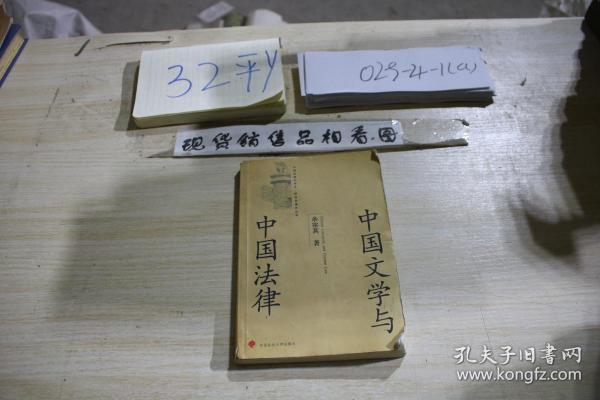 32平y
029-4-1(a)
现货销售品相看图
中国文学与
中国法律
余宗其 著
中国政法大学出版社
孔夫子旧书网
www.kongfz.com